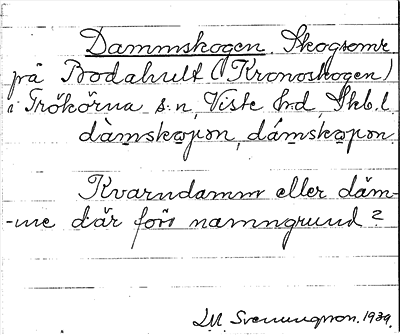 Dammskogen. Skogsområ
på Bodahult (Kronoskogen)
i Trökörna s:n, Viste h:d, Skb. l.
dàmskøpon, dámskøpon.
Kvarndamm eller däm-
-me där förr namngrund?
LM Svenungson. 1939.